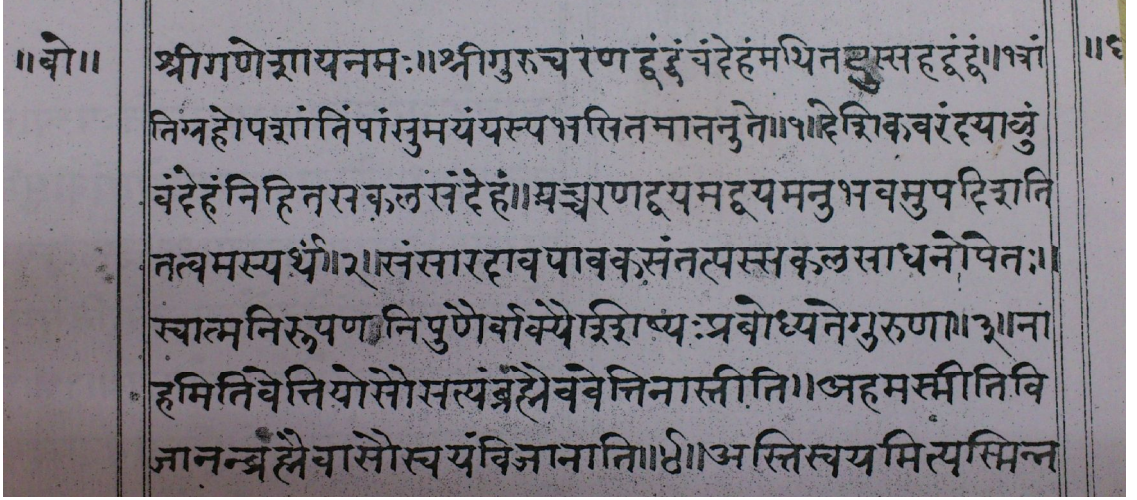 ॥बो॥ श्रीगणेशायनमः॥श्रीगुरुचरणद्वंद्वंवंदेहंमथितदुस्सहद्वंद्वं॥भ्रां ॥
तिग्रहोपशांतिंपांसुमयंयस्यभसितमातनुते॥१॥देशिकवरंदयाळुं
वंदेहंनिहितसकलसंदेहं॥यच्चरणद्वयमद्वयमनुभवमुपदिशति
तत्वमस्यर्थं॥२॥संसारदावपावकसंतत्पस्सकलसाधनोपेतः॥
स्वात्मनिरूपणनिपुणैर्वाक्यैश्शिष्यःप्रबोध्यतेगुरुणा॥३॥ना
हमितिवेत्तियोसौसत्यंब्रह्मैववेत्तिनास्तीति॥अहमस्मीतिवि
जानन्ब्रह्मैवासौस्वयंविजानाति॥४॥अस्तिस्वयमित्यस्मिन्न